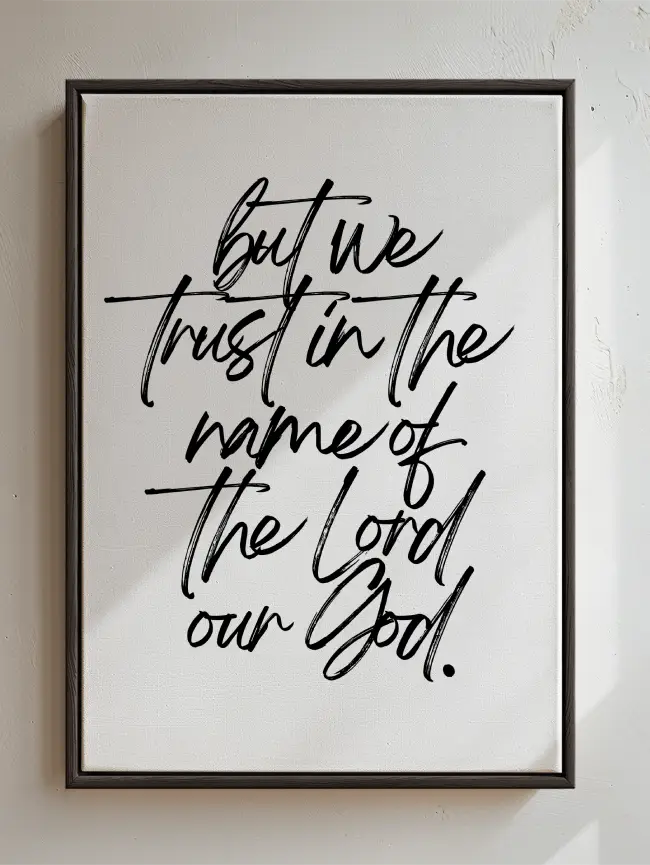 but we
trust in the
name of
the Lord
our God.